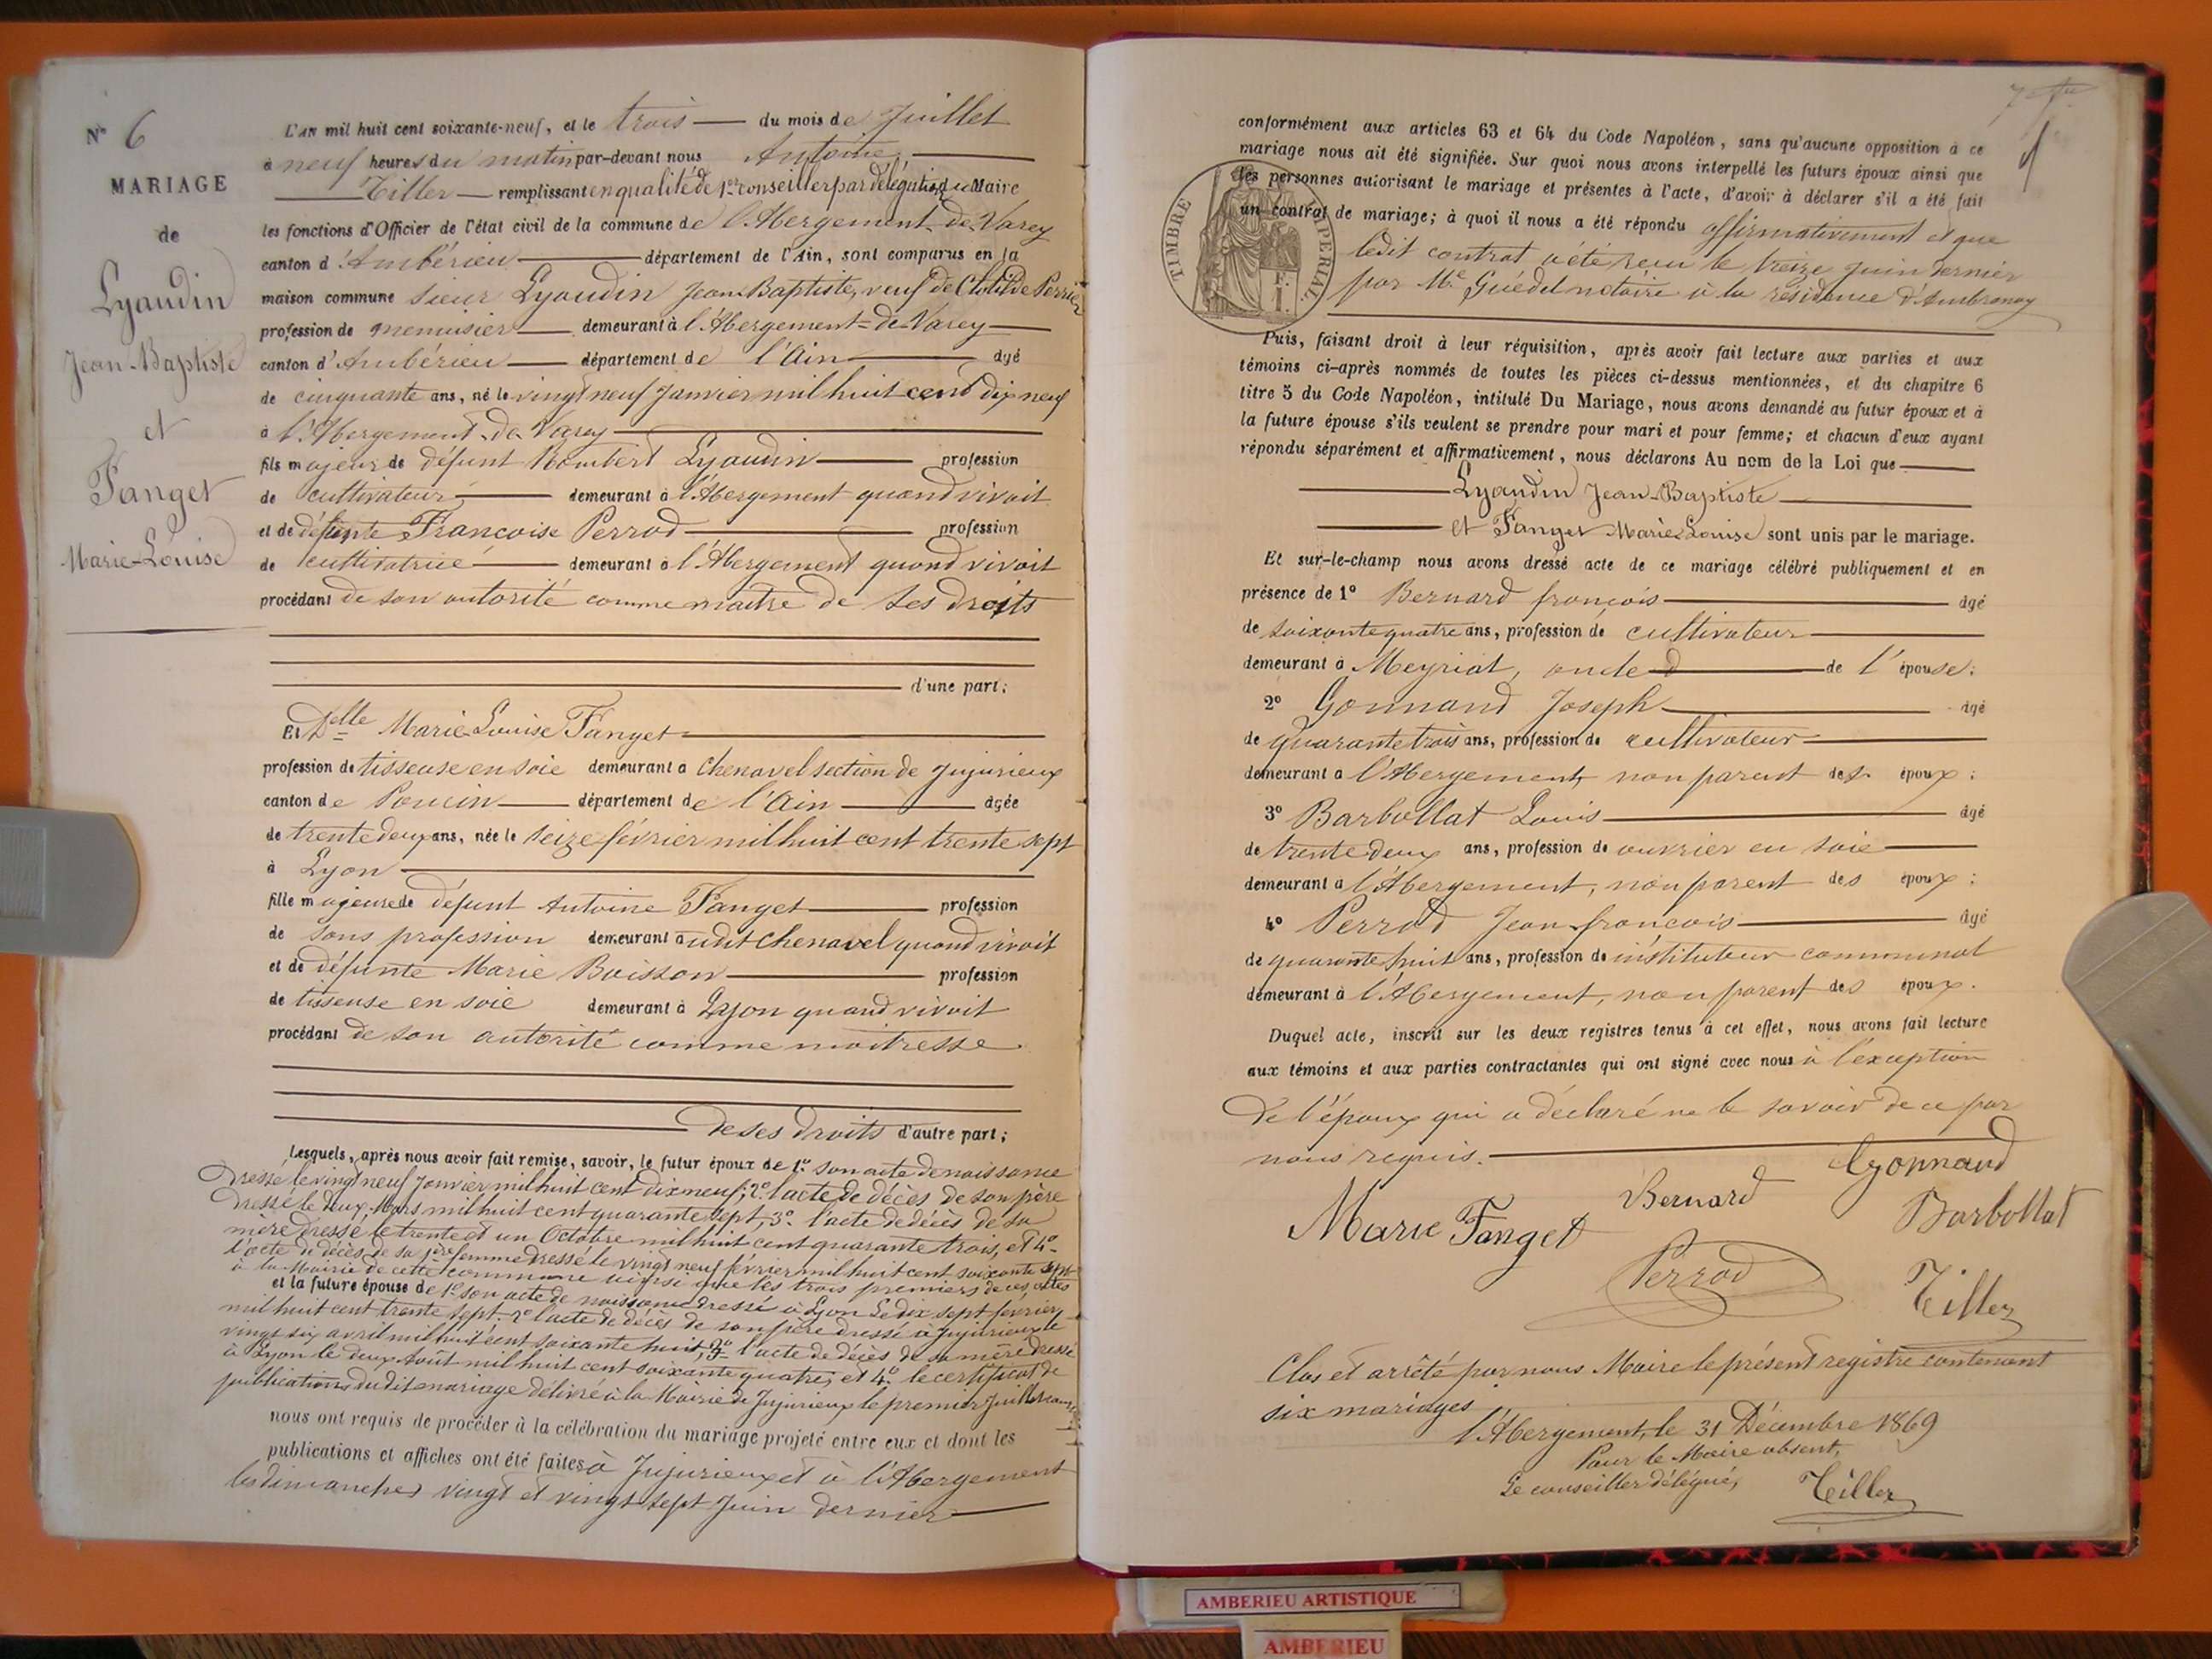 N° 6
MARIAGE
de
Lyaudin
Jean-Baptiste
et
Fanget
Marie-Louise
L'an mil huit cent soixante-neuf, et le trois du mois de Juillet
à neuf heures du matin par-devant nous Antoine
Tiller remplissant en qualité de 1er conseiller par délégation du Maire
les fonctions d'Officier de l'état civil de la commune de l'Abergement-de-Varey
canton d'Ambérieu département de l'Ain, sont comparus en la
maison commune sieur Lyaudin Jean-Baptiste, veuf de Clotilde Perrier
profession de menuisier demeurant à l'Abergement-de-Varey
canton d'Ambérieu département de l'Ain âgé
de cinquante ans, né le vingt neuf Janvier mil huit cent dix neuf
à l'Abergement-de-Varey
fils majeur de défunt Rambert Lyaudin profession
de cultivateur demeurant à l'Abergement quand vivait
et de défunte Francoise Perrod profession
de cultivatrice demeurant à l'Abergement quand vivait
procédant de son autorité comme maître de ses droits
d'une part;
Et Delle Marie-Louise Fanget
profession de tisseuse en soie demeurant à Chenavel section de Jujurieux
canton de Poncin département de l'Ain âgée
de trente deux ans, née le seize février mil huit cent trente sept
à Lyon
fille majeure de défunt Antoine Fanget profession
de sans profession demeurant audit Chenavel quand vivait
et de défunte Marie Boisson profession
de tisseuse en soie demeurant à Lyon quand vivait
procédant de son autorité comme maitresse
de ses droits d'autre part;
Lesquels, après nous avoir fait remise, savoir, le futur époux de 1° son acte de naissance
dressé le vingt neuf Janvier mil huit cent dix neuf; 2° l'acte de décès de son père
dressé le deux Mars mil huit cent quarante sept, 3° l'acte de décès de sa
mère dressé le trente et un Octobre mil huit cent quarante trois, et 4°
l'acte de décès de sa 1ère femme dressé le vingt neuf février mil huit cent soixante sept
à la Mairie de cette commune ainsi que les trois premiers de ces actes
et la future épouse de 1° son acte de naissance dressé à Lyon le dix sept février
mil huit cent trente sept, 2° l'acte de décès de son père dressé à Jujurieux le
vingt six avril mil huit cent soixante huit, 3° l'acte de décès de sa mère dressé
à Lyon le deux Août mil huit cent soixante quatre, et 4° le certificat de
publications dudit mariage délivré à la Mairie de Jujurieux le premier Juillet
nous ont requis de procéder à la célébration du mariage projeté entre eux et dont les
publications et affiches ont été faites à Jujurieux et à l'Abergement
les dimanches vingt et vingt sept Juin dernier
conformément aux articles 63 et 64 du Code Napoléon, sans qu'aucune opposition à ce
mariage nous ait été signifiée. Sur quoi nous avons interpellé les futurs époux ainsi que
les personnes autorisant le mariage et présentes à l'acte, d'avoir à déclarer s'il a été fait
un contrat de mariage; à quoi il nous a été répondu affirmativement et que
ledit contrat a été recu le treize juin dernier
par Me Guédel notaire à la résidence d'Ambronay
TIMBRE IMPERIAL
Puis, faisant droit à leur réquisition, après avoir fait lecture aux parties et aux
témoins ci-après nommés de toutes les pièces ci-dessus mentionnées, et du chapitre 6
titre 5 du Code Napoléon, intitulé Du Mariage, nous avons demandé au futur époux et à
la future épouse s'ils veulent se prendre pour mari et pour femme; et chacun d'eux ayant
répondu séparément et affirmativement, nous déclarons Au nom de la Loi que
Lyaudin Jean-Baptiste
et Fanget Marie-Louise sont unis par le mariage.
Et sur-le-champ nous avons dressé acte de ce mariage célébré publiquement et en
présence de 1° Bernard françois âgé
de soixante quatre ans, profession de cultivateur
demeurant à Meyriat, oncle de l'épouse;
2° Gonnand Joseph âgé
de quarante trois ans, profession de cultivateur
demeurant à l'Abergement, non parent des époux;
3° Barbollat Louis âgé
de trente deux ans, profession de ouvrier en soie
demeurant à l'Abergement, non parent des époux;
4° Perrod Jean-francois âgé
de quarante huit ans, profession de instituteur communal
demeurant à l'Abergement, non parent des époux.
Duquel acte, inscrit sur les deux registres tenus à cet effet, nous avons fait lecture
aux témoins et aux parties contractantes qui ont signé avec nous à l'exception
de l'époux qui a déclaré ne le savoir de ce par
nous requis.
Gonnand
Bernard
Marie Fanget
Barbollat
Perrod
Tiller
Clos et arrêté par nous Maire le présent registre contenant
six mariages
l'Abergement, le 31 Décembre 1869
Pour le Maire absent,
Le conseiller délégué,
Tiller
AMBERIEU ARTISTIQUE
AMBERIEU